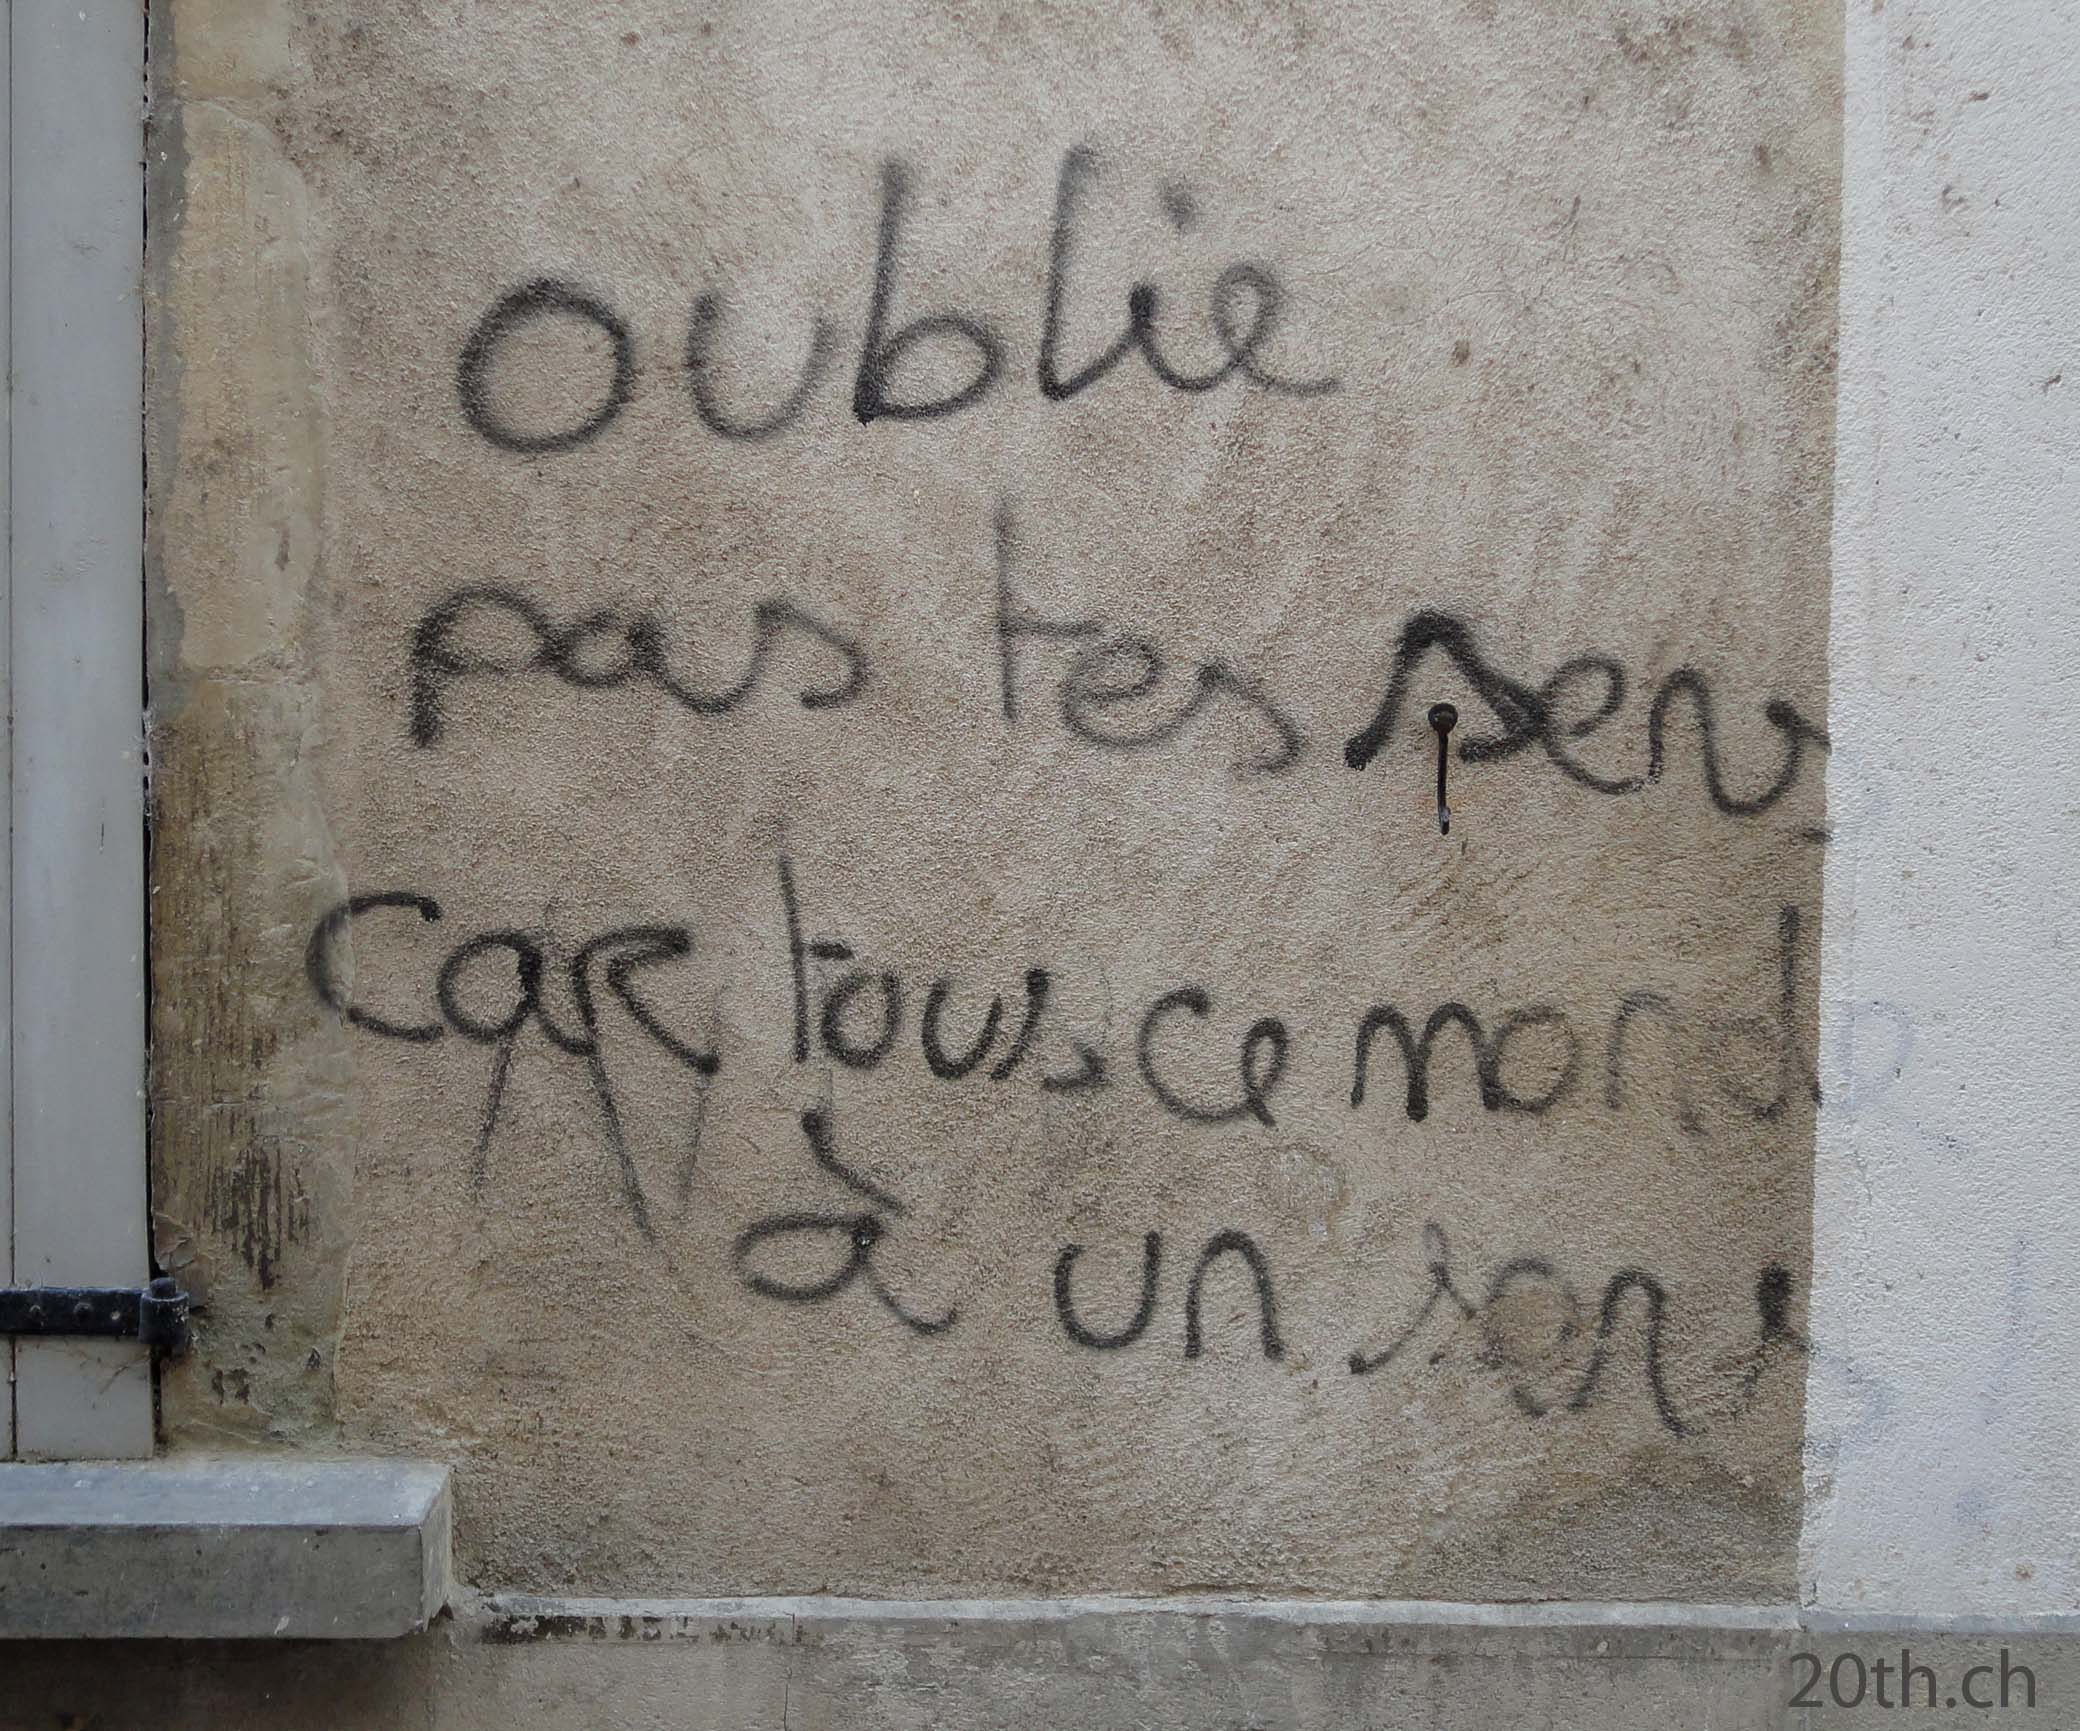 oublie
pas tes sens
car tous ce mond
à un sens
20th.ch